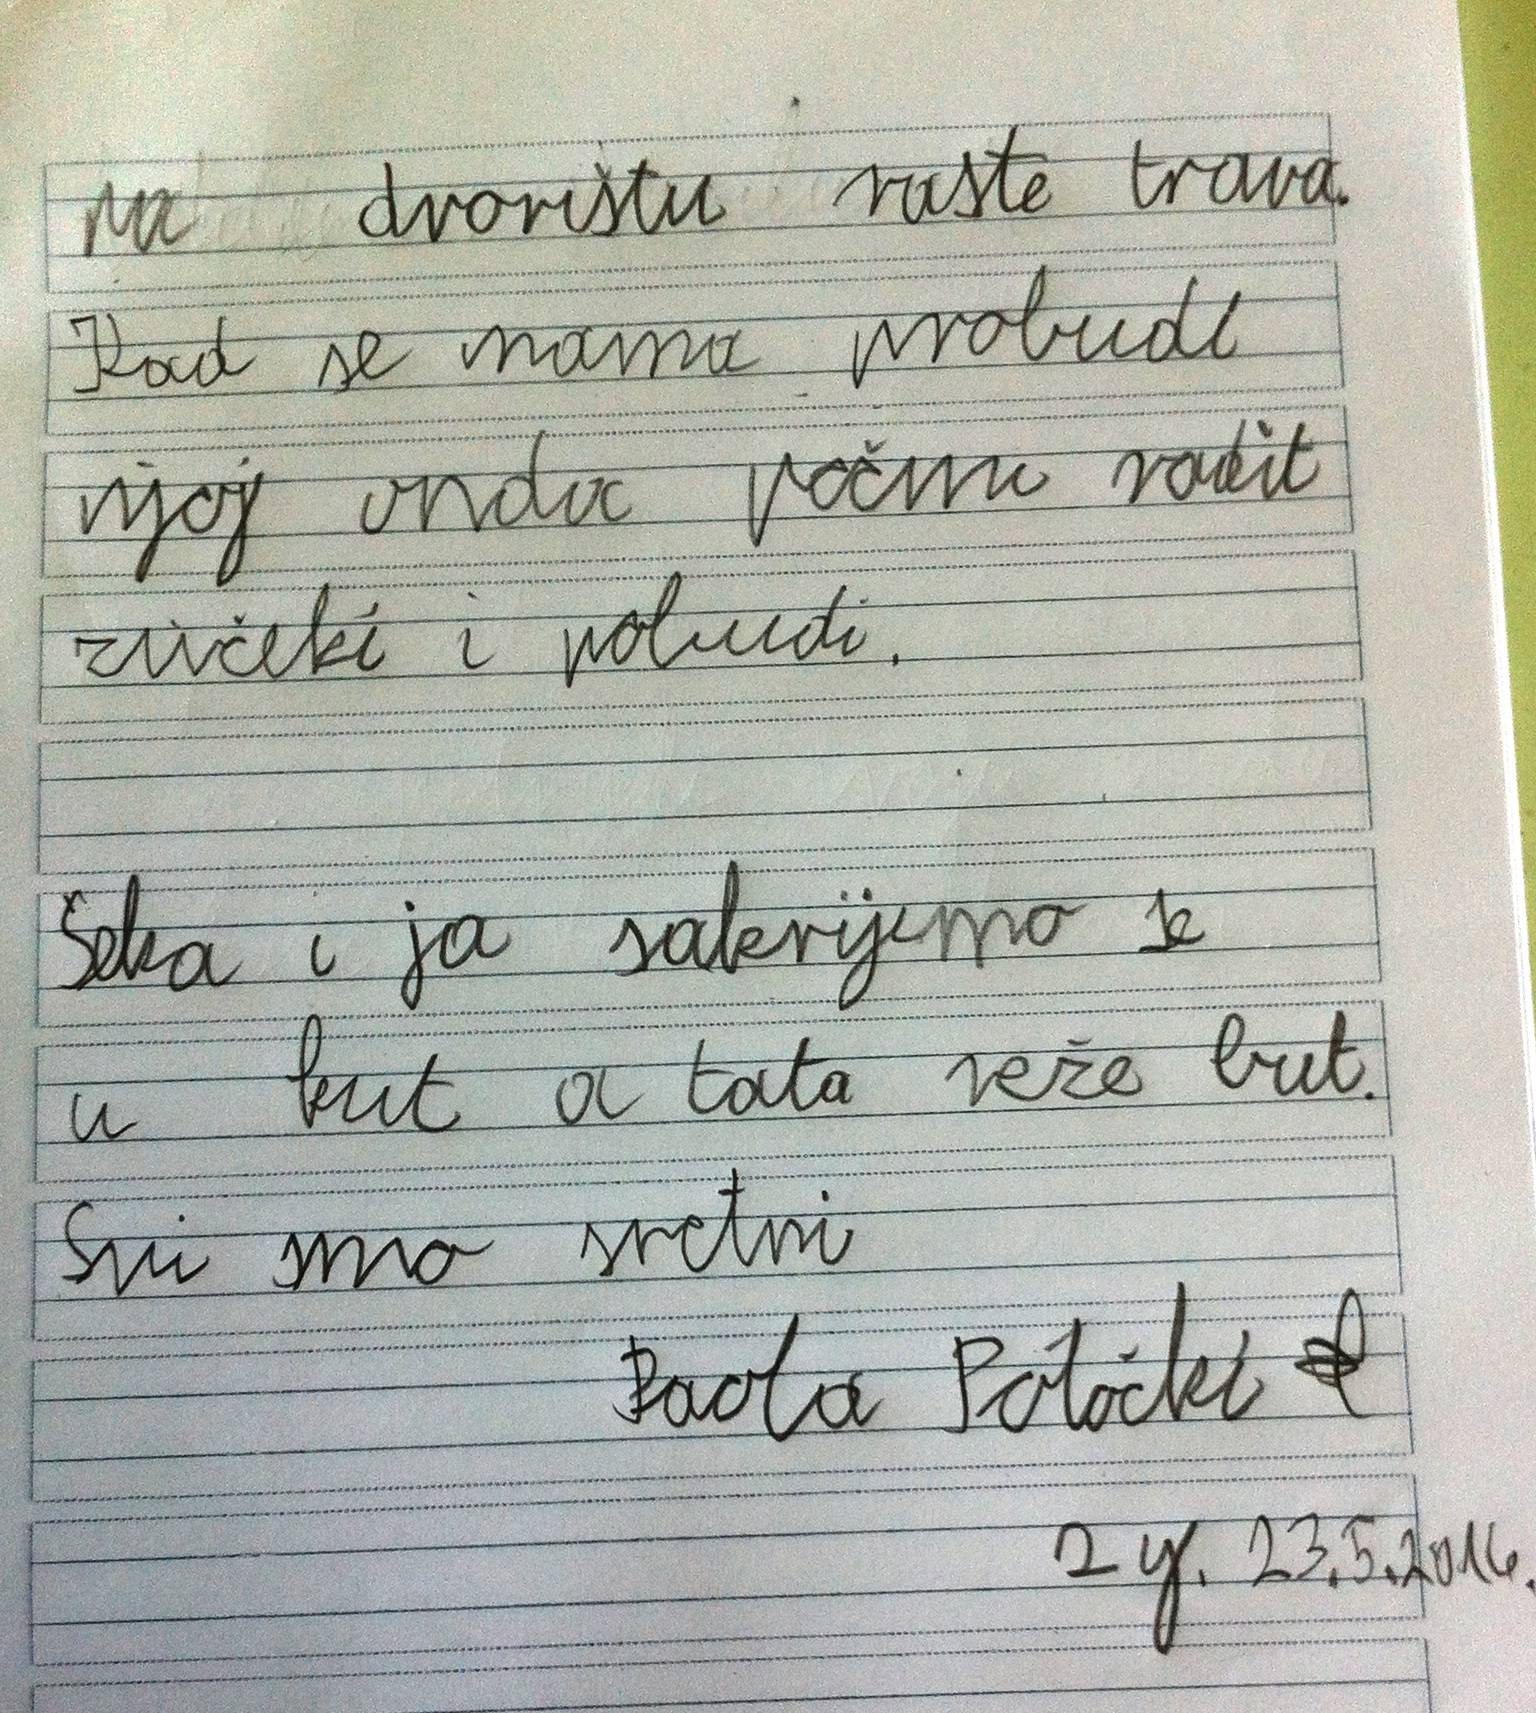 na dvorištu raste trava.
Kad se mama probudi
njoj onda počmu radit
zivčeki i poludi.
Seka i ja sakrijemo se
u kut a tata reže brut.
Svi smo sretni
Paola Polački
2 g. 23.5.2016.